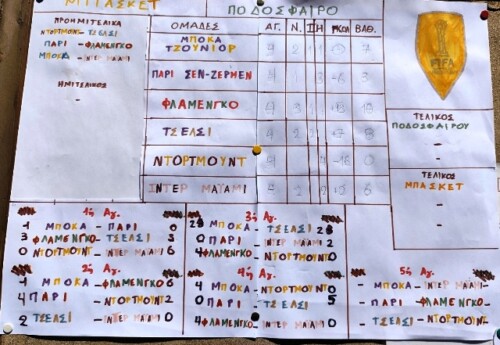 ΜΠΑΣΚΕΤ
ΠΟΔΟΣΦΑΙΡΟ
ΠΡΟΗΜΙΤΕΛΙΚΑ
ΝΤΟΡΤΜΟΥΝΤ - ΤΣΕΛΣΙ
ΠΑΡΙ - ΦΛΑΜΕΝΓΚΟ
ΜΠΟΚΑ - ΙΝΤΕΡ ΜΑΪΑΜΙ
ΗΜΙΤΕΛΙΚΟΣ
-
ΟΜΑΔΕΣ ΑΓ. Ν. ΓΚΟΛ ΒΑΘ.
ΜΠΟΚΑ
ΤΖΟΥΝΙΟΡ
ΠΑΡΙ ΣΕΝ-ΖΕΡΜΕΝ
ΦΛΑΜΕΝΓΚΟ
ΤΣΕΛΣΙ
ΝΤΟΡΤΜΟΥΝΤ
ΙΝΤΕΡ ΜΑΪΑΜΙ
FIFA
ΤΕΛΙΚΟΣ
ΠΟΔΟΣΦΑΙΡΟΥ
-
-
ΤΕΛΙΚΟΣ
ΜΠΑΣΚΕΤ
-
-
1η Αγ.
1 ΜΠΟΚΑ - ΠΑΡΙ 0
3 ΦΛΑΜΕΝΓΚΟ - ΤΣΕΛΣΙ 3
0 ΝΤΟΡΤΜΟΥΝΤ - ΙΝΤΕΡ ΜΑΪΑΜΙ 6
2η Αγ.
1 ΜΠΟΚΑ - ΦΛΑΜΕΝΓΚΟ 6
4 ΠΑΡΙ - ΝΤΟΡΤΜΟΥΝΤ 2
2 ΤΣΕΛΣΙ - ΙΝΤΕΡ ΜΑΪΑΜΙ 0
3η Αγ.
ΜΠΟΚΑ - ΤΣΕΛΣΙ
0 ΠΑΡΙ - ΙΝΤΕΡ ΜΑΪΑΜΙ 2
4 ΦΛΑΜΕΝΓΚΟ - ΝΤΟΡΤΜΟΥΝΤ 0
4η Αγ.
4 ΜΠΟΚΑ - ΝΤΟΡΤΜΟΥΝΤ 0
0 ΠΑΡΙ - ΤΣΕΛΣΙ 5
4 ΦΛΑΜΕΝΓΚΟ - ΙΝΤΕΡ ΜΑΪΑΜΙ 0
5η Αγ.
- ΜΠΟΚΑ - ΙΝΤΕΡ ΜΑΪΑΜΙ -
- ΠΑΡΙ - ΦΛΑΜΕΝΓΚΟ -
- ΤΣΕΛΣΙ - ΝΤΟΡΤΜΟΥΝΤ -